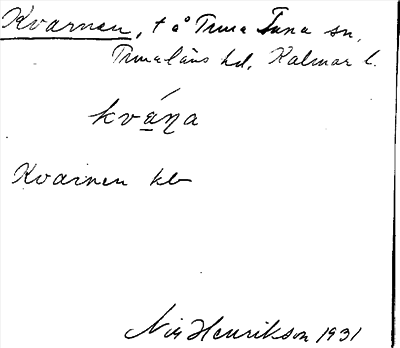 Kvarnen, t å Tuna Tuna sn,
Tunaläns hd, Kalmar l.
kváṇa
Kvarnen kb
Nils Henrikson 1931